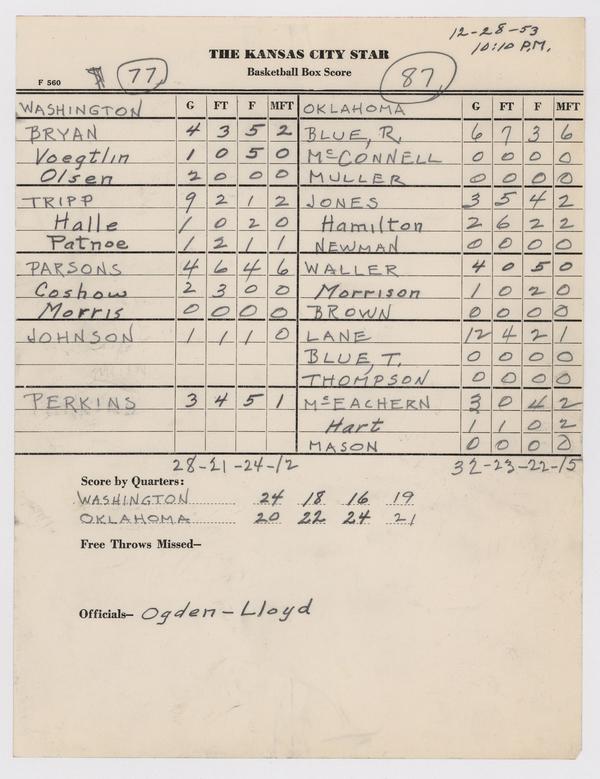 12-28-53
10:10 P.M.
THE KANSAS CITY STAR
Basketball Box Score
F 560
77
87
WASHINGTON G FT F MFT OKLAHOMA G FT F MFT
BRYAN 4 3 5 2 BLUE, R. 6 7 3 6
Voegtlin 1 0 5 0 McCONNELL 0 0 0 0
Olsen 2 0 0 0 MULLER 0 0 0 0
TRIPP 9 2 1 2 JONES 3 5 4 2
Halle 1 0 2 0 Hamilton 2 6 2 2
Patnoe 1 2 1 1 NEWMAN 0 0 0 0
PARSONS 4 6 4 6 WALLER 4 0 5 0
Coshow 2 3 0 0 Morrison 1 0 2 0
Morris 0 0 0 0 BROWN 0 0 0 0
JOHNSON 1 1 1 0 LANE 12 4 2 1
BLUE, T. 0 0 0 0
THOMPSON 0 0 0 0
PERKINS 3 4 5 1 McEACHERN 3 0 4 2
Hart 1 1 0 2
MASON 0 0 0 0
28-21-24-12 32-23-22-15
Score by Quarters:
WASHINGTON 24 18 16 19
OKLAHOMA 20 22 24 21
Free Throws Missed—
Officials— Ogden-Lloyd